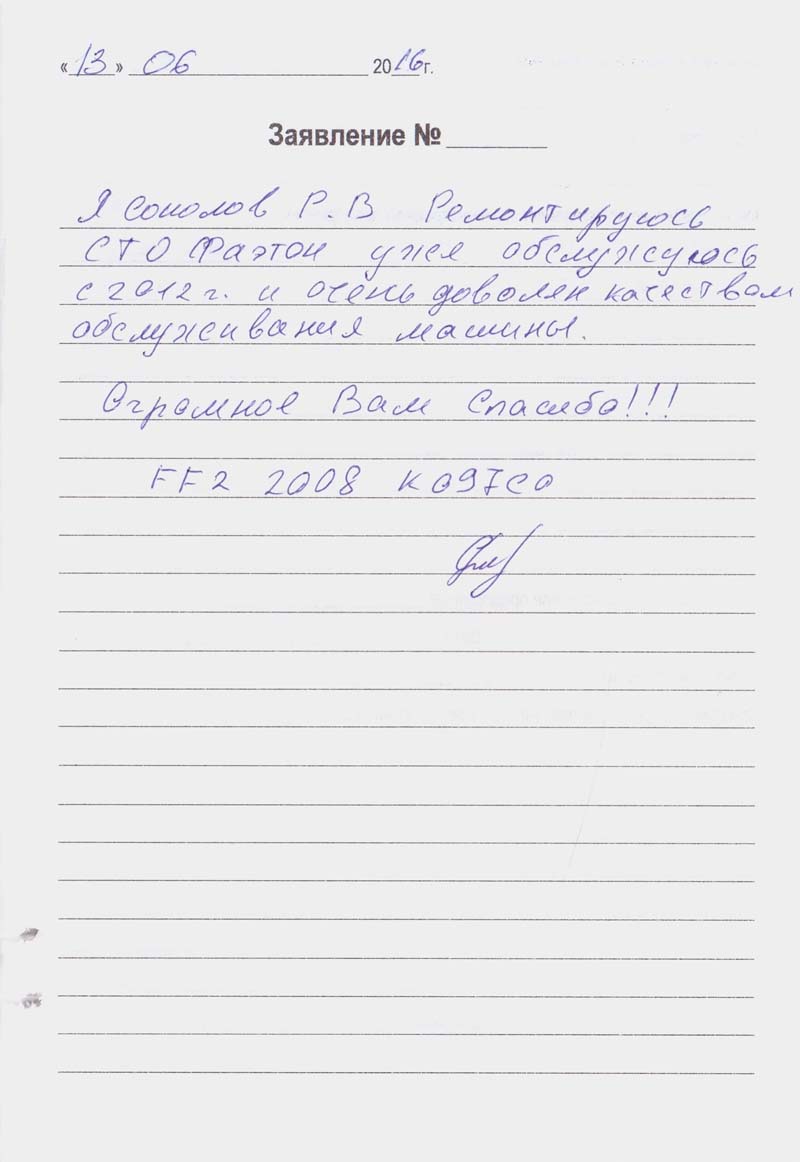 «13» 06 2016г.
Заявление №
Я Соколов Р.В Ремонтируюсь
СТО Фаэтон уже обслужуюсь
с 2012 г. и очень доволен качествам
обслуживания машины.
Огромное Вам Спасибо!!!
FF2 2008 К097СО